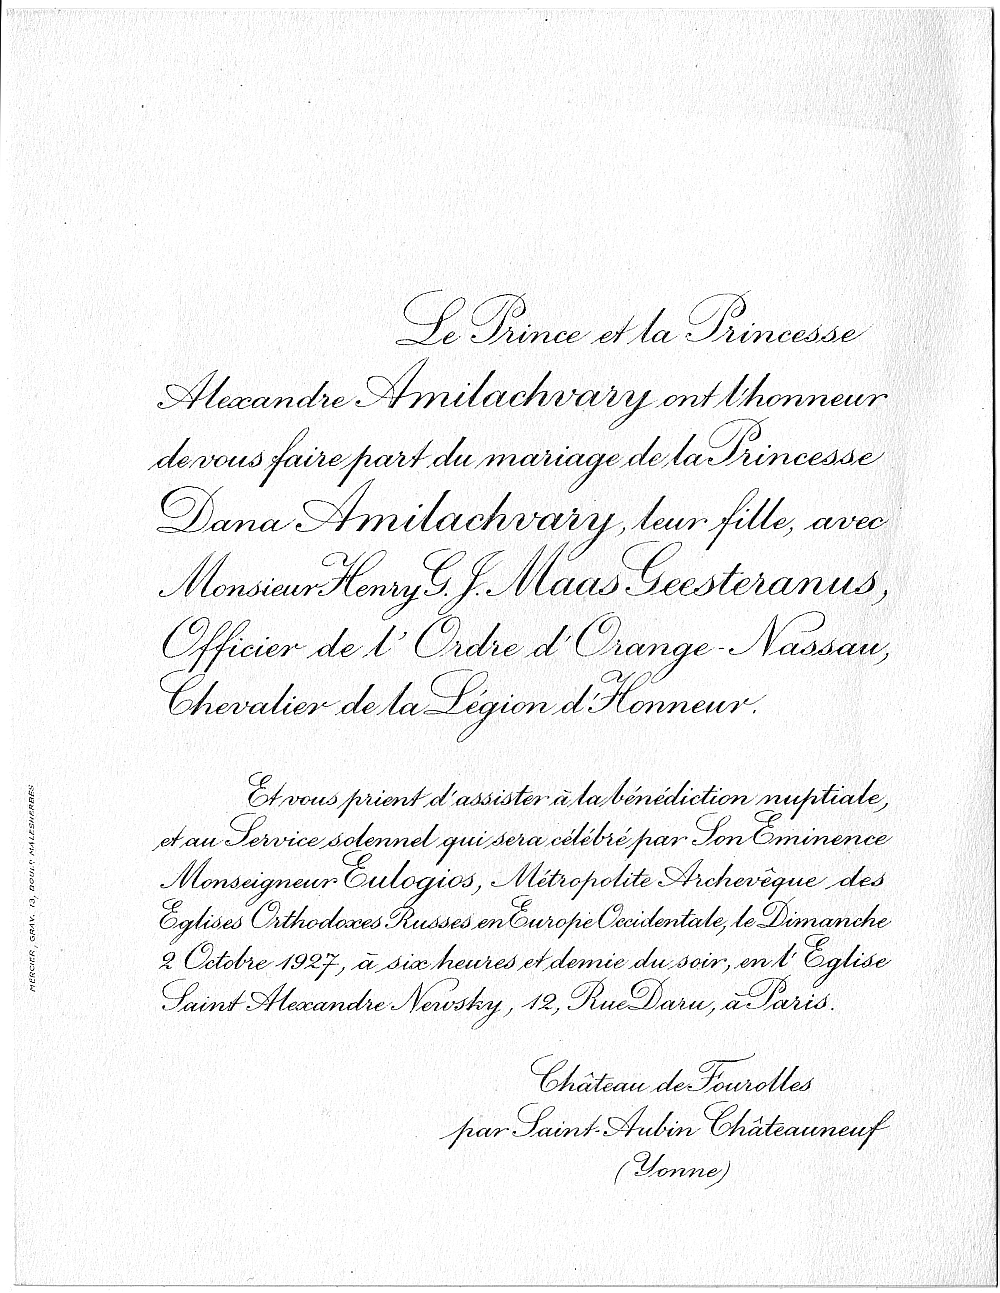 Le Prince et la Princesse
Alexandre Amilachvary ont l'honneur
de vous faire part du mariage de la Princesse
Dana Amilachvary, leur fille, avec
Monsieur Henry G. J. Maas Geesteranus,
Officier de l'Ordre d'Orange-Nassau,
Chevalier de la Légion d'Honneur.
Et vous prient d'assister à la bénédiction nuptiale,
et au Service solennel qui sera célébré par Son Eminence
Monseigneur Eulogios, Métropolite Archevêque des
Eglises Orthodoxes Russes en Europe Occidentale, le Dimanche
2 Octobre 1927, à six heures et demie du soir, en l'Eglise
Saint Alexandre Newsky, 12, Rue Daru, à Paris.
Château de Fourolles
par Saint-Aubin Châteauneuf
(Yonne)
MERCIER, GRAV. 13, BOULD MALESHERBES